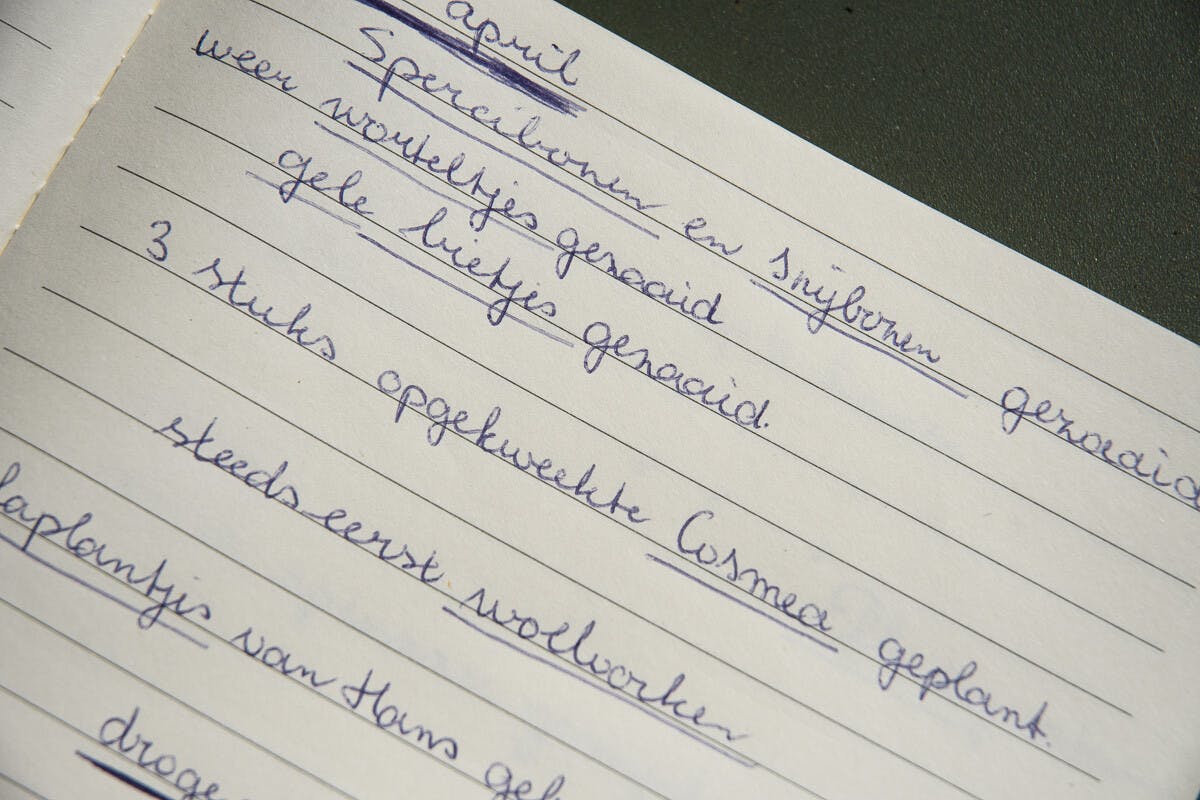 april
Spercibonen en snijbonen gezaaid
weer worteltjes gezaaid
gele bietjes gezaaid.
3 stuks opgekweekte Cosmea geplant.
steeds eerst wolvorken
laplantjes van Hans gek
droge